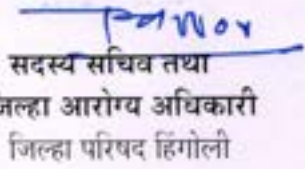 सदस्य सचिव तथा
जल्हा आरोग्य अधिकारी
जिल्हा परिषद हिंगोली